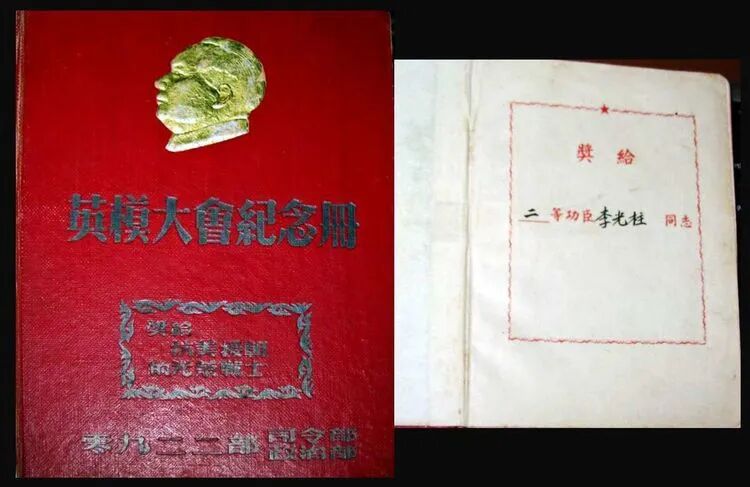 英模大會紀念冊
獎給
抗美援朝
的光榮戰士
零九二二部司令部
政治部
獎給
二等功臣李光柱同志